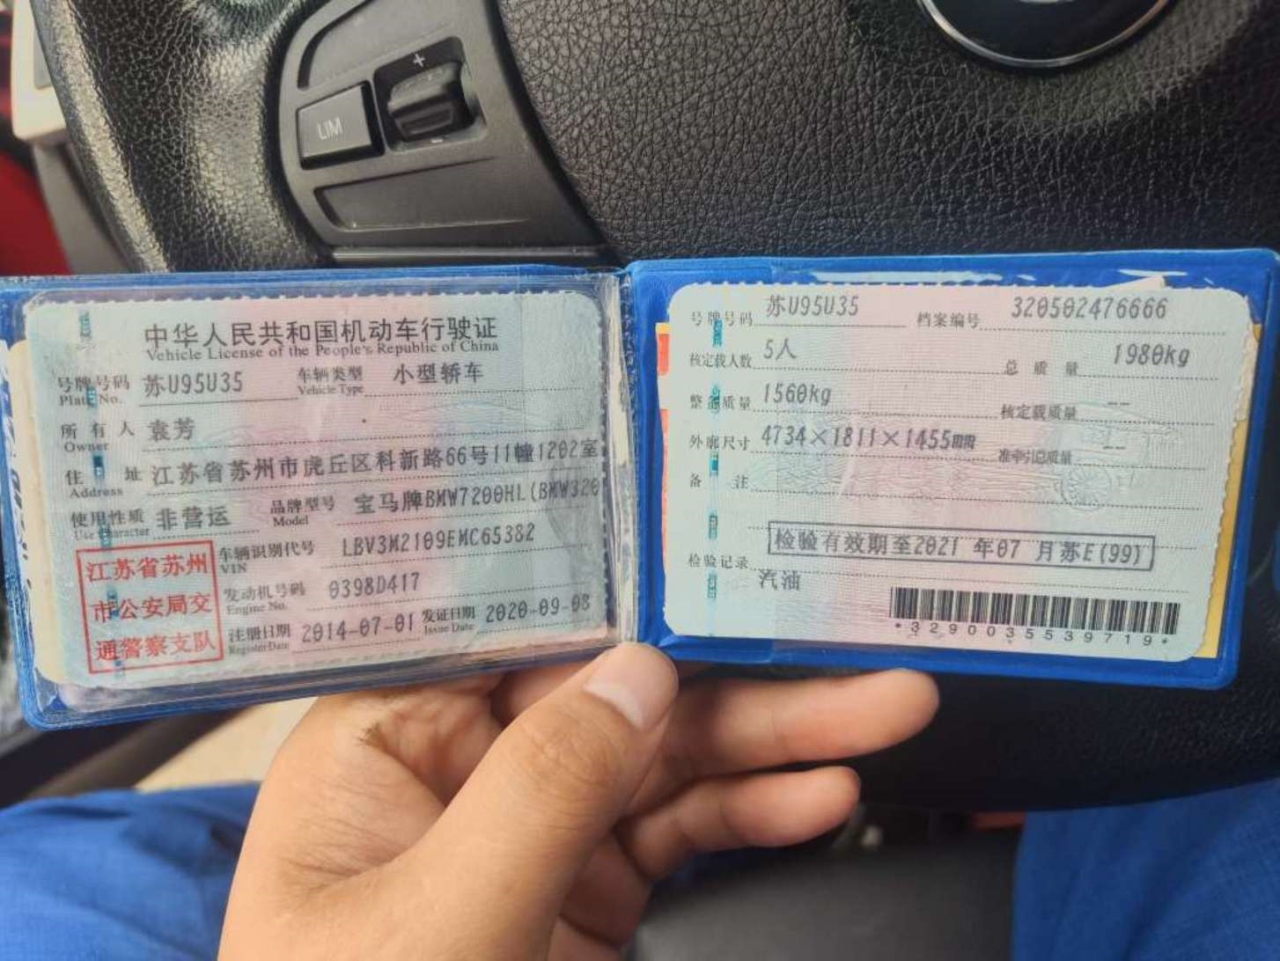 LIM
中华人民共和国机动车行驶证
Vehicle License of the People's Republic of China
号牌号码 苏U95U35 车辆类型 小型轿车
Plate No. Vehicle Type
所有人 袁芳
Owner
住址 江苏省苏州市虎丘区科新路66号11幢1202室
Address
使用性质 非营运 品牌型号 宝马牌BMW7200HL(BMW320
Use Character Model
江苏省苏州
市公安局交
通警察支队
车辆识别代号 LBV3M2109EMC65382
VIN
发动机号码 0398D417
Engine No.
注册日期 2014-07-01 发证日期 2020-09-08
Register Date Issue Date
号牌号码 苏U95U35 档案编号 320502476666
核定载人数 5人 总质量 1980kg
整备质量 1560kg 核定载质量 --
外廓尺寸 4734×1811×1455mm 准牵引总质量 --
备注
检验有效期至2021 年07 月苏E(99)
检验记录
汽油
*3290035539719*